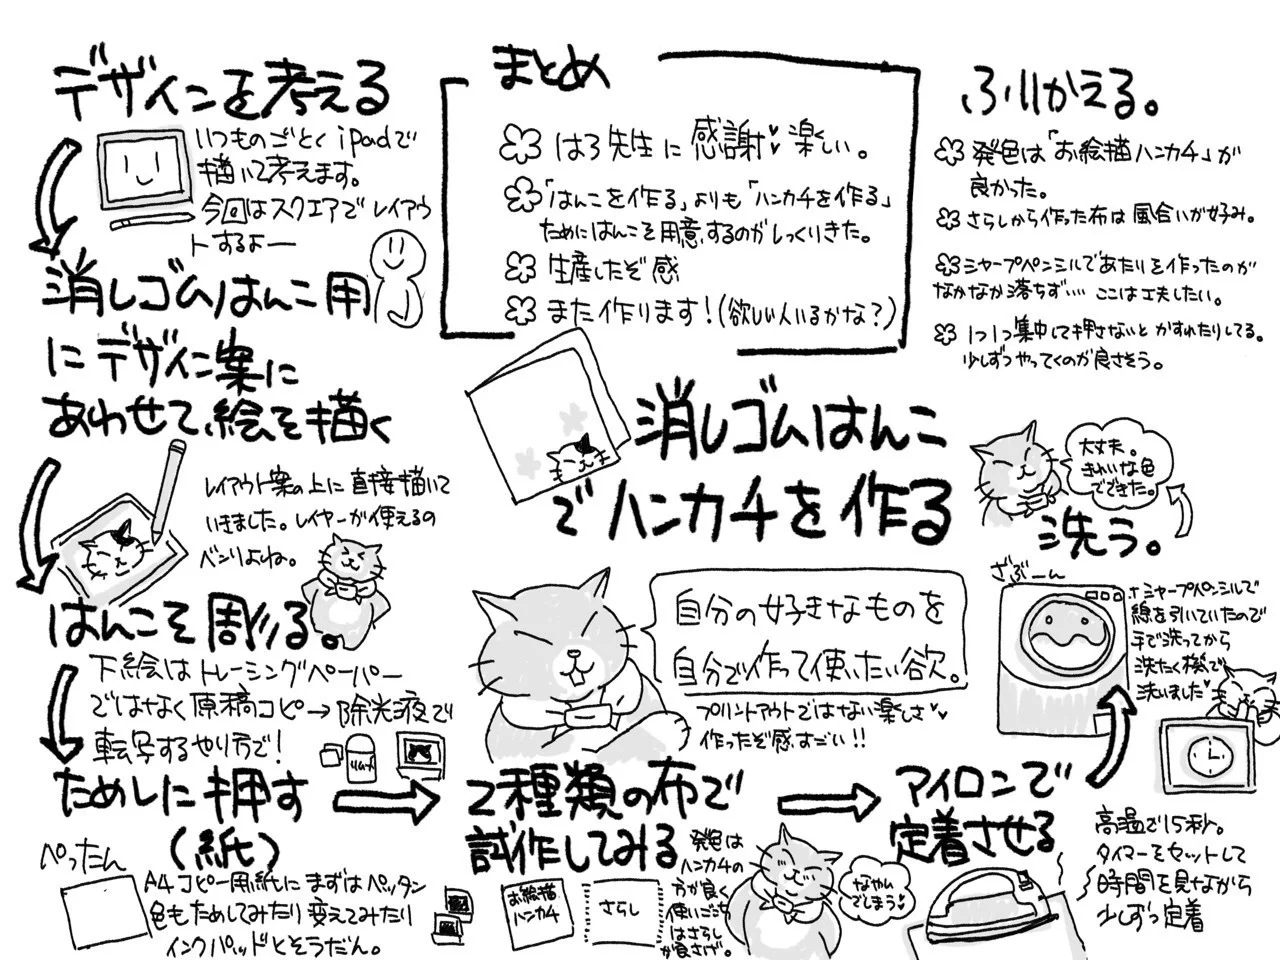 消しゴムはんこ
でハンカチを作る
自分の好きなものを
自分で作って使いたい欲。
プリントアウトではない楽しさ
作ったぞ感すごい!!
デザインを考える
いつものごとくiPadで
描いて考えます。
今回はスクエアでレイアウ
トするよー
消しゴムはんこ用
にデザイン案に
あわせて絵を描く
レイアウト案の上に直接描いて
いきました。レイヤーが使えるの
ベンリよね。
はんこを彫る。
下絵はトレーシングペーパー
ではなく原稿コピー→除光液で
転写するやり方で!
ためしに押す
(紙)
ぺったん
A4コピー用紙にまずはペッタン
色もためしてみたり変えてみたり
インクパッドとそうだん。
2種類の布で
試作してみる
お絵描
ハンカチ
さらし
発色は
ハンカチの
方が良く
使いごこち
はさらし
が良さげ。
なやん
でしまう
アイロンで
定着させる
高温で15秒。
タイマーをセットして
時間を見ながら
少しずつ定着
洗う。
ざぶーん
シャープペンシルで
線を引いていたので
手で洗ってから
洗たく機で
洗いました
大丈夫。
きれいな色
でできた。
ふりかえる。
発色は「お絵描ハンカチ」が
良かった。
さらしから作った布は風合いが好み。
シャープペンシルであたりを作ったのが
なかなか落ちず…ここは工夫したい。
1つ1つ集中して押さないとかすれたりしてる。
少しずつやってくのが良さそう。
まとめ
はろ先生に感謝 楽しい。
「はんこを作る」よりも「ハンカチを作る」
ためにはんこを用意するのがしっくりきた。
生産したぞ感
また作ります!(欲しい人いるかな?)